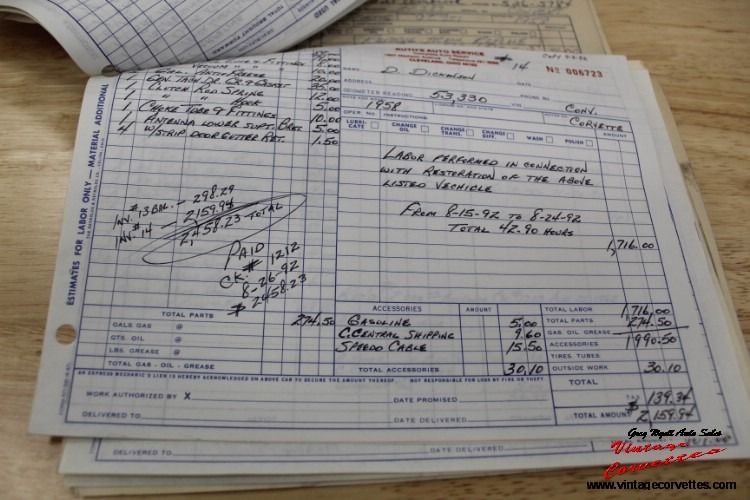 AUTO SERVICE
CLEVELAND, OHIO
# 14
Nº 006723
NAME D. Dickinson
ADDRESS
ODOMETER READING 53,330
PHONE NO.
1958
Conv.
Corvette
OPER. NO. INSTRUCTIONS: AMOUNT
LUBRICATE CHANGE OIL CHANGE TRANS. CHANGE DIFF. WASH POLISH
Labor performed in connection
with restoration of the above
listed vechicle
From 8-15-92 to 8-24-92
Total 42.90 hours
1,716.00
ESTIMATES FOR LABOR ONLY — MATERIAL ADDITIONAL
1 Clutch Rod Spring
1 " " Hook
1 Choke Tube & Fittings 10.00
1 Antenna Lower Supt. Brkt. 5.00
4 W/Strip Door Gutter Ret. 1.50
Inv. #13 Bal. — 298.29
Inv. #14 — 2,159.94
2,458.23 Total
Paid
Ck. # 1212
8-26-92
$ 2458.23
TOTAL PARTS 274.50
GALS GAS @
QTS. OIL @
LBS. GREASE @
TOTAL GAS - OIL - GREASE
ACCESSORIES AMOUNT
Gasoline 5.00
C. Central Shipping 9.60
Speedo Cable 15.50
TOTAL ACCESSORIES 30.10
TOTAL LABOR 1,716.00
TOTAL PARTS 274.50
GAS OIL GREASE
ACCESSORIES 1990.50
TIRES TUBES
OUTSIDE WORK 30.10
TOTAL
TAX 139.34
TOTAL AMOUNT $ 2,159.94
AN EXPRESS MECHANIC'S LIEN IS HEREBY ACKNOWLEDGED ON ABOVE CAR TO SECURE THE AMOUNT THEREOF. NOT RESPONSIBLE FOR LOSS BY FIRE OR THEFT.
WORK AUTHORIZED BY X DATE PROMISED
DELIVERED TO DATE DELIVERED
DELIVERED TO DATE DELIVERED
Greg Wyatt Auto Sales
Vintage
Corvettes
www.vintagecorvettes.com